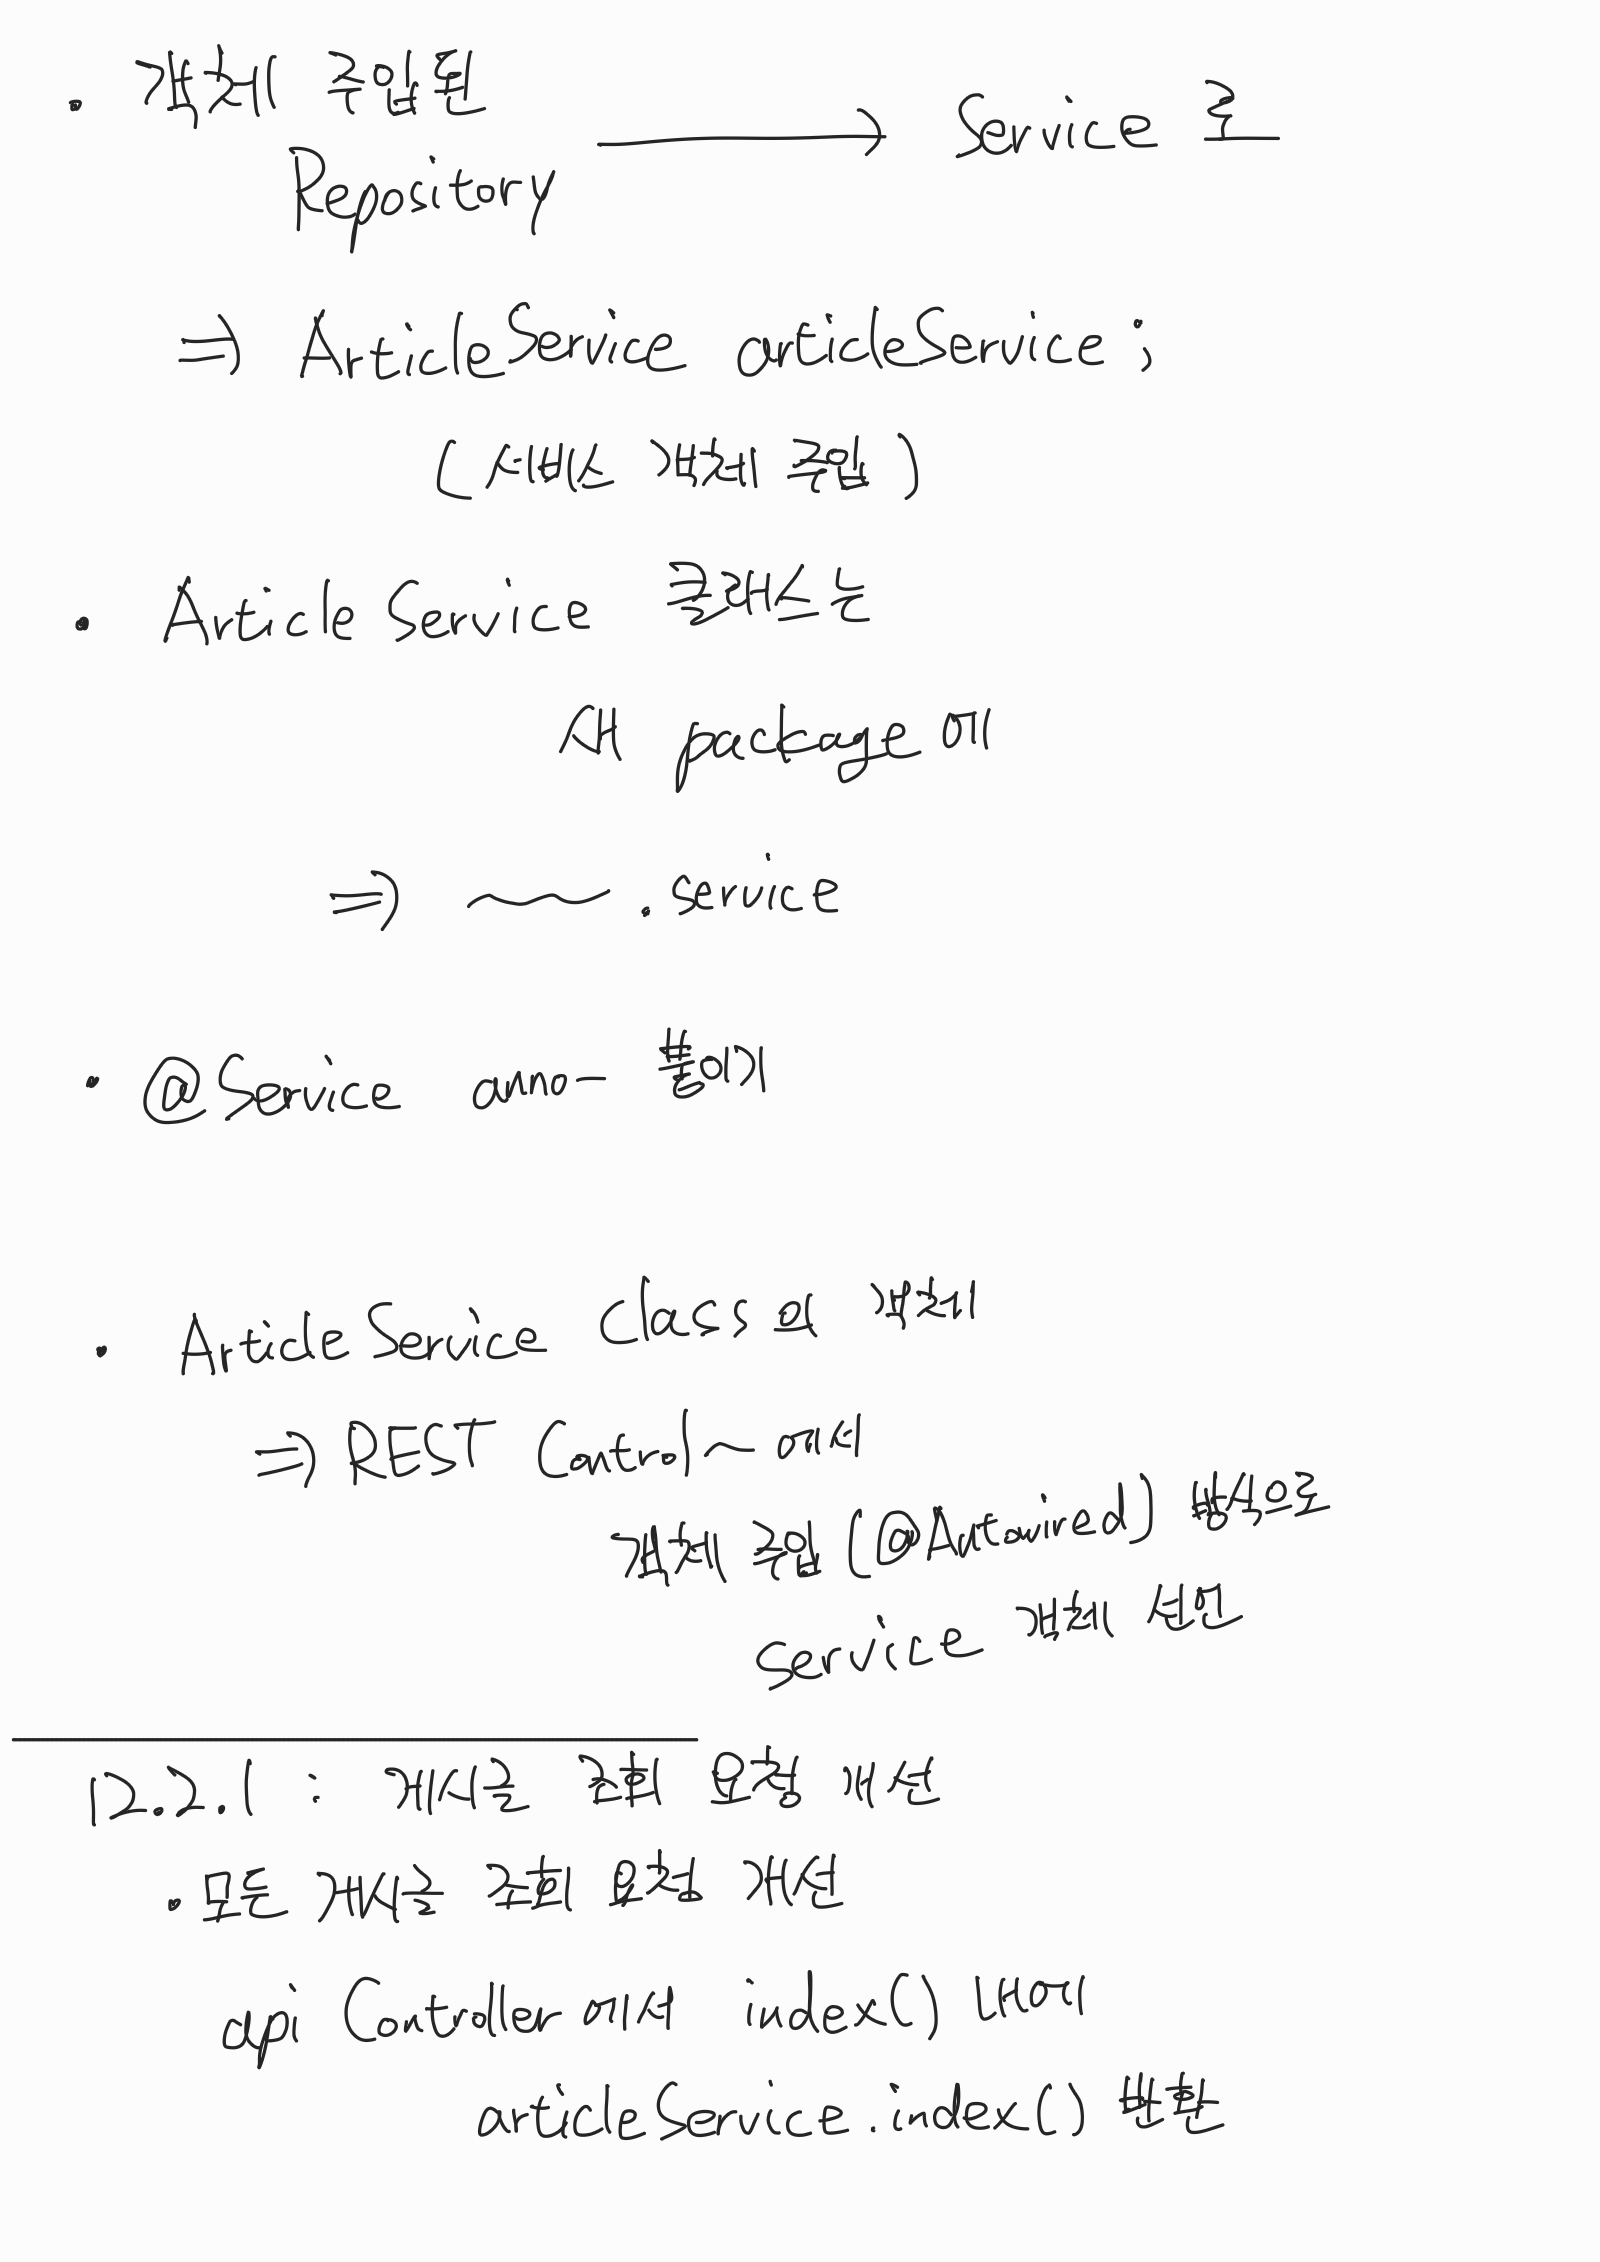 · 객체 주입된
Repository ⟶ Service 로
⇒ ArticleService articleService ;
( 서비스 객체 주입 )
· Article Service 클래스는
새 package 에
⇒ ~~ . service
· @Service anno- 붙이기
· Article Service Class 의 객체
⇒ REST Control ~ 에서
객체 주입 (@Autowired) 방식으로
service 객체 선언
12.2.1 : 게시글 조회 요청 개선
· 모든 게시글 조회 요청 개선
api Controller 에서 index() 내에
articleService.index() 반환